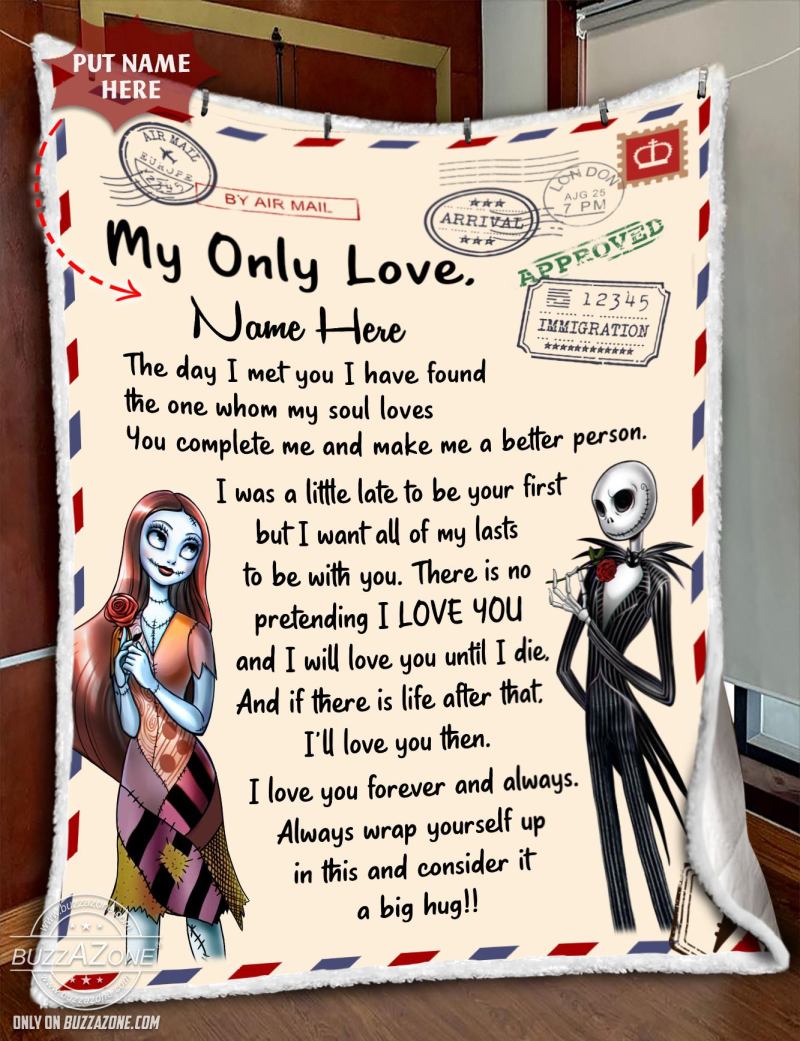 PUT NAME
HERE
AIR MAIL
EUROPE
12345
BY AIR MAIL
ARRIVAL
LONDON
AJG 25
7 PM
APPROVED
12345
IMMIGRATION
My Only Love,
Name Here
The day I met you I have found
the one whom my soul loves
You complete me and make me a better person.
I was a little late to be your first
but I want all of my lasts
to be with you. There is no
pretending I LOVE YOU
and I will love you until I die,
And if there is life after that,
I'll love you then.
I love you forever and always.
Always wrap yourself up
in this and consider it
a big hug!!
www.buzzazone.com
BUZZAZONE
www.buzzazone.com
ONLY ON BUZZAZONE.COM